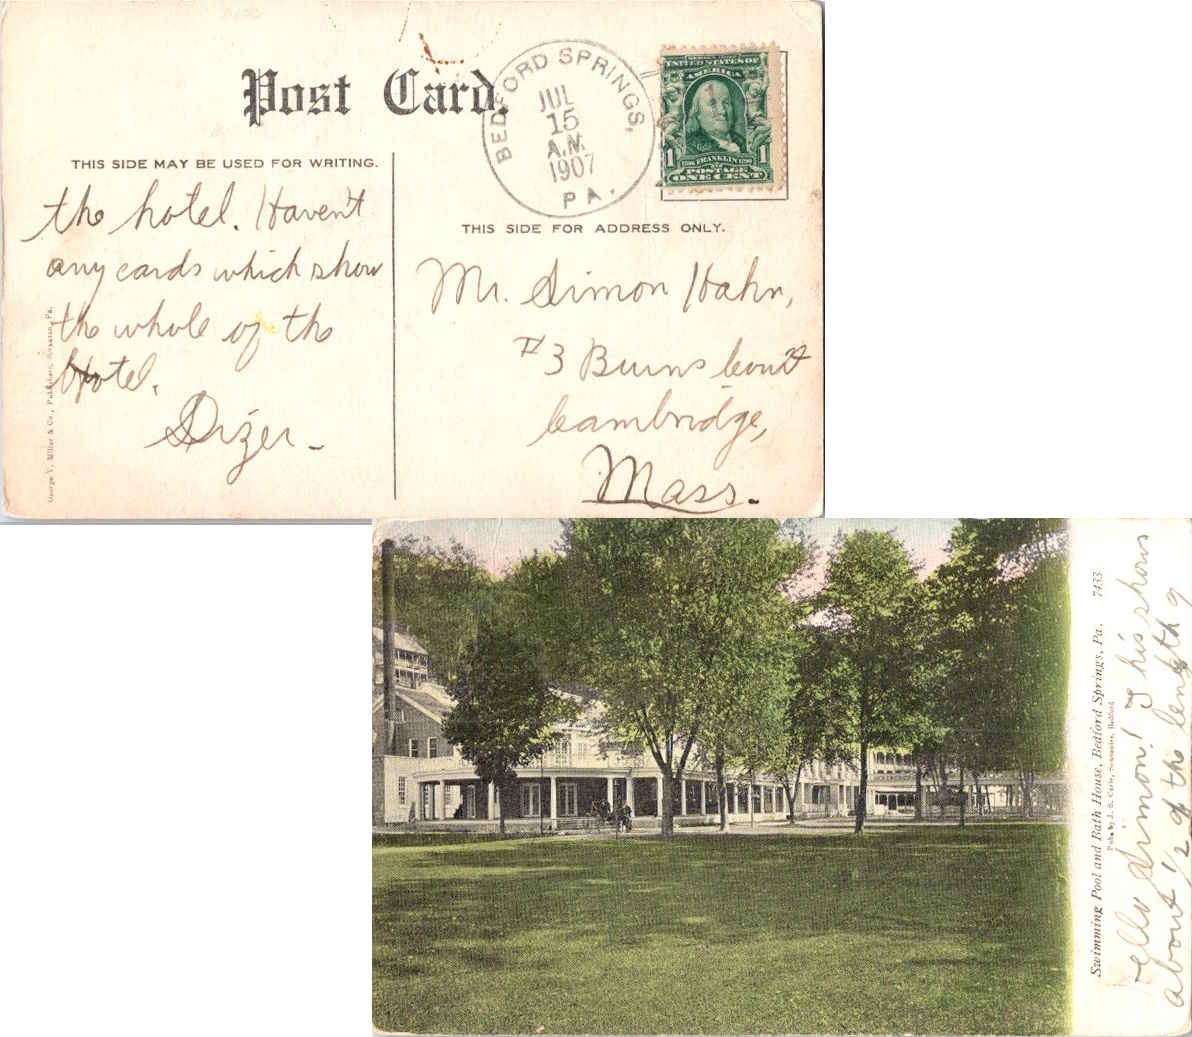 Post Card.
BEDFORD SPRINGS,
JUL
15
A.M.
1907
PA.
UNITED STATES OF
AMERICA
1706 FRANKLIN 1790
1 POSTAGE 1
ONE CENT
THIS SIDE MAY BE USED FOR WRITING.
the hotel. Haven't
any cards which show
the whole of the
Hotel.
Dizer -
THIS SIDE FOR ADDRESS ONLY.
Mr. Simon Hahn,
#3 Burns Court
Cambridge,
Mass.
George V. Millar & Co., Publishers, Scranton, Pa.
Swimming Pool and Bath House, Bedford Springs, Pa. 7433
Pub. by J. G. Souvenirs, Bedford
Hello Simon! This shows
about 1/2 of the length of